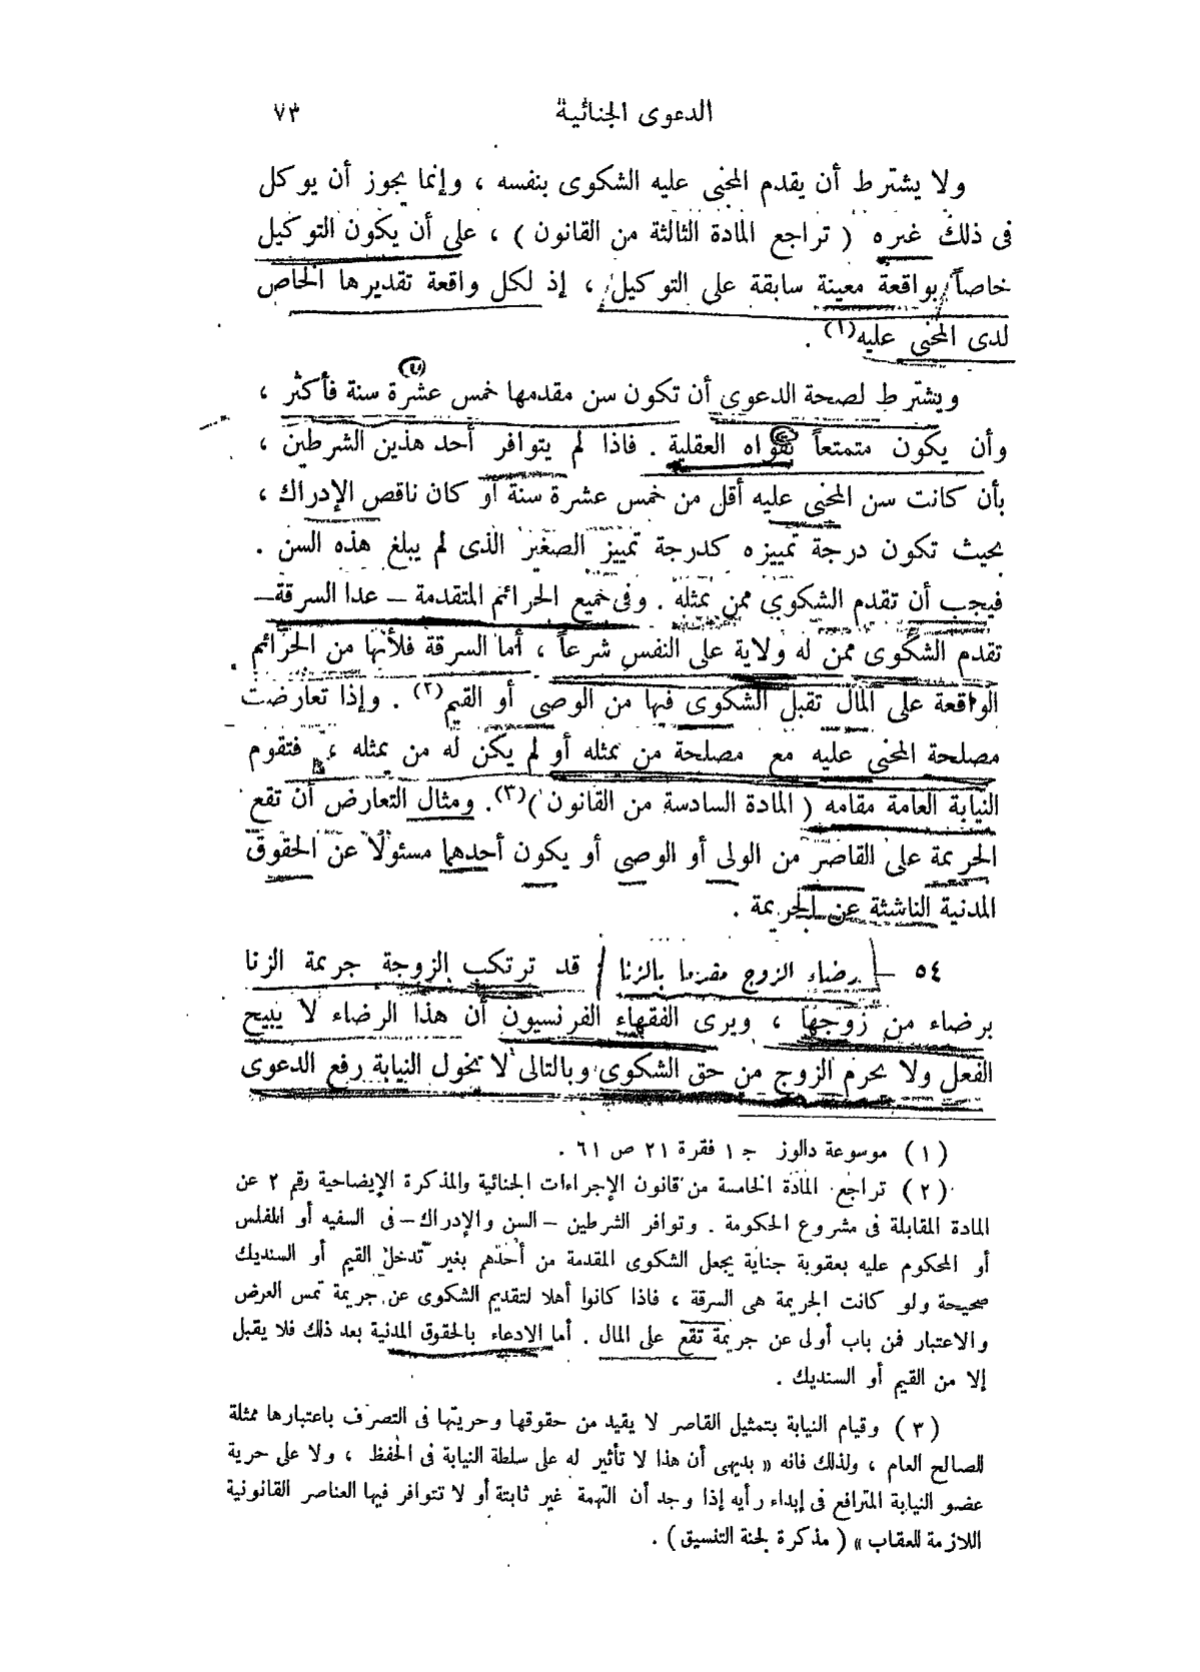 الدعوى الجنائية ٧٣
ولا يشترط أن يقدم المجنى عليه الشكوى بنفسه ، وإنما يجوز أن يوكل
فى ذلك غيره ( تراجع المادة الثالثة من القانون ) ، على أن يكون التوكيل
خاصاً بواقعة معينة سابقة على التوكيل ، إذ لكل واقعة تقديرها الخاص
لدى المجنى عليه (١) .
ويشترط لصحة الدعوى أن تكون سن مقدمها خمس عشرة سنة فأكثر ،
وأن يكون متمتعاً بقواه العقلية . فاذا لم يتوافر أحد هذين الشرطين ،
بأن كانت سن المجنى عليه أقل من خمس عشرة سنة أو كان ناقص الإدراك ،
بحيث تكون درجة تمييزه كدرجة تمييز الصغير الذى لم يبلغ هذه السن .
فيجب أن تقدم الشكوى ممن يمثله . وفى جميع الجرائم المتقدمة – عدا السرقة –
تقدم الشكوى ممن له ولاية على النفس شرعاً ، أما السرقة فلأنها من الجرائم
الواقعة على المال تقبل الشكوى فيها من الوصى أو القيم (٢) . وإذا تعارضت
مصلحة المجنى عليه مع مصلحة من يمثله أو لم يكن له من يمثله ، فتقوم
النيابة العامة مقامه ( المادة السادسة من القانون ) (٣) . ومثال التعارض أن تقع
الجريمة على القاصر من الولى أو الوصى أو يكون أحدهما مسئولا عن الحقوق
المدنية الناشئة عن الجريمة .
٥٤ – رضاء الزوج مقدما بالزنا / قد ترتكب الزوجة جريمة الزنا
برضاء من زوجها ، ويرى الفقهاء الفرنسيون أن هذا الرضاء لا يبيح
الفعل ولا يحرم الزوج من حق الشكوى وبالتالى لا يخول النيابة رفع الدعوى
(١) موسوعة دالوز ج ١ فقرة ٢١ ص ٦١ .
(٢) تراجع المادة الخامسة من قانون الإجراءات الجنائية والمذكرة الإيضاحية رقم ٢ عن
المادة المقابلة فى مشروع الحكومة . وتوافر الشرطين – السن والإدراك – فى السفيه أو المفلس
أو المحكوم عليه بعقوبة جناية يجعل الشكوى المقدمة من أحدهم بغير تدخل القيم أو السنديك
صحيحة ولو كانت الجريمة هى السرقة ، فاذا كانوا أهلا لتقديم الشكوى عن جريمة تمس العرض
والاعتبار فمن باب أولى عن جريمة تقع على المال . أما الادعاء بالحقوق المدنية بعد ذلك فلا يقبل
إلا من القيم أو السنديك .
(٣) وقيام النيابة بتمثيل القاصر لا يقيد من حقوقها وحريتها فى التصرف باعتبارها ممثلة
للصالح العام ، ولذلك فانه « بديهى أن هذا لا تأثير له على سلطة النيابة فى الحفظ ، ولا على حرية
عضو النيابة المترافع فى إبداء رأيه إذا وجد أن التهمة غير ثابتة أو لا تتوافر فيها العناصر القانونية
اللازمة للعقاب » ( مذكرة لجنة التنسيق ) .